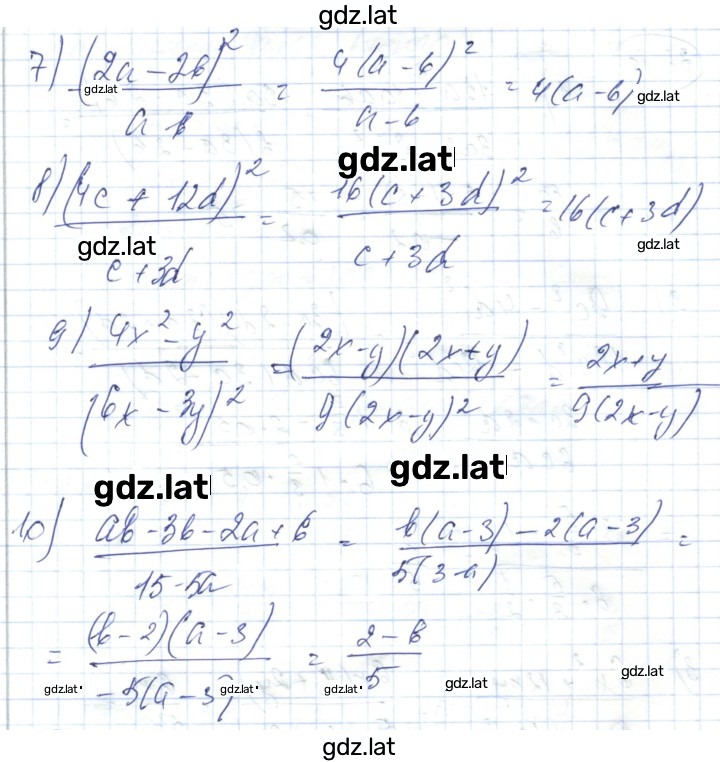 gdz.lat
7) (2a - 2b)² / a b = 4(a - b)² / a - b = 4(a - b)
gdz.lat gdz.lat
gdz.lat
8) (4c + 12d)² / c + 3d = 16(c + 3d)² / c + 3d = 16(c + 3d)
gdz.lat gdz.lat
9) 4x² - y² / (6x - 3y)² = (2x - y)(2x + y) / 9(2x - y)² = 2x + y / 9(2x - y)
gdz.lat gdz.lat
10) ab - 3b - 2a + 6 / 15 - 5a = b(a - 3) - 2(a - 3) / 5(3 - a) =
= (b - 2)(a - 3) / -5(a - 3) = 2 - b / 5
gdz.lat gdz.lat gdz.lat gdz.lat gdz.lat
gdz.lat